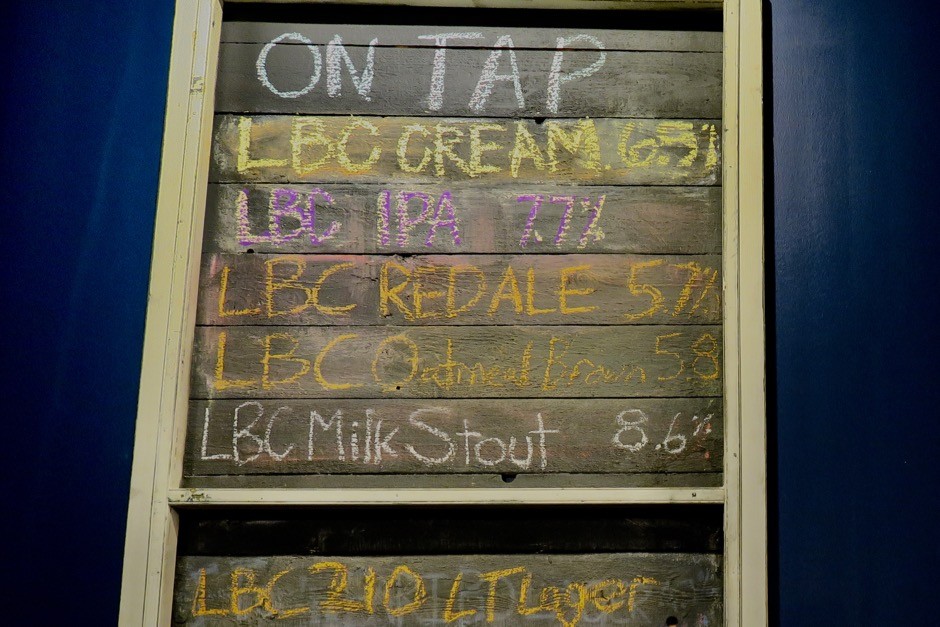 ON TAP
LBC CREAM 6.5%
LBC IPA 7.7%
LBC RED ALE 5.7%
LBC Oatmeal Brown 5.8
LBC Milk Stout 8.6%
LBC 210 LT Lager